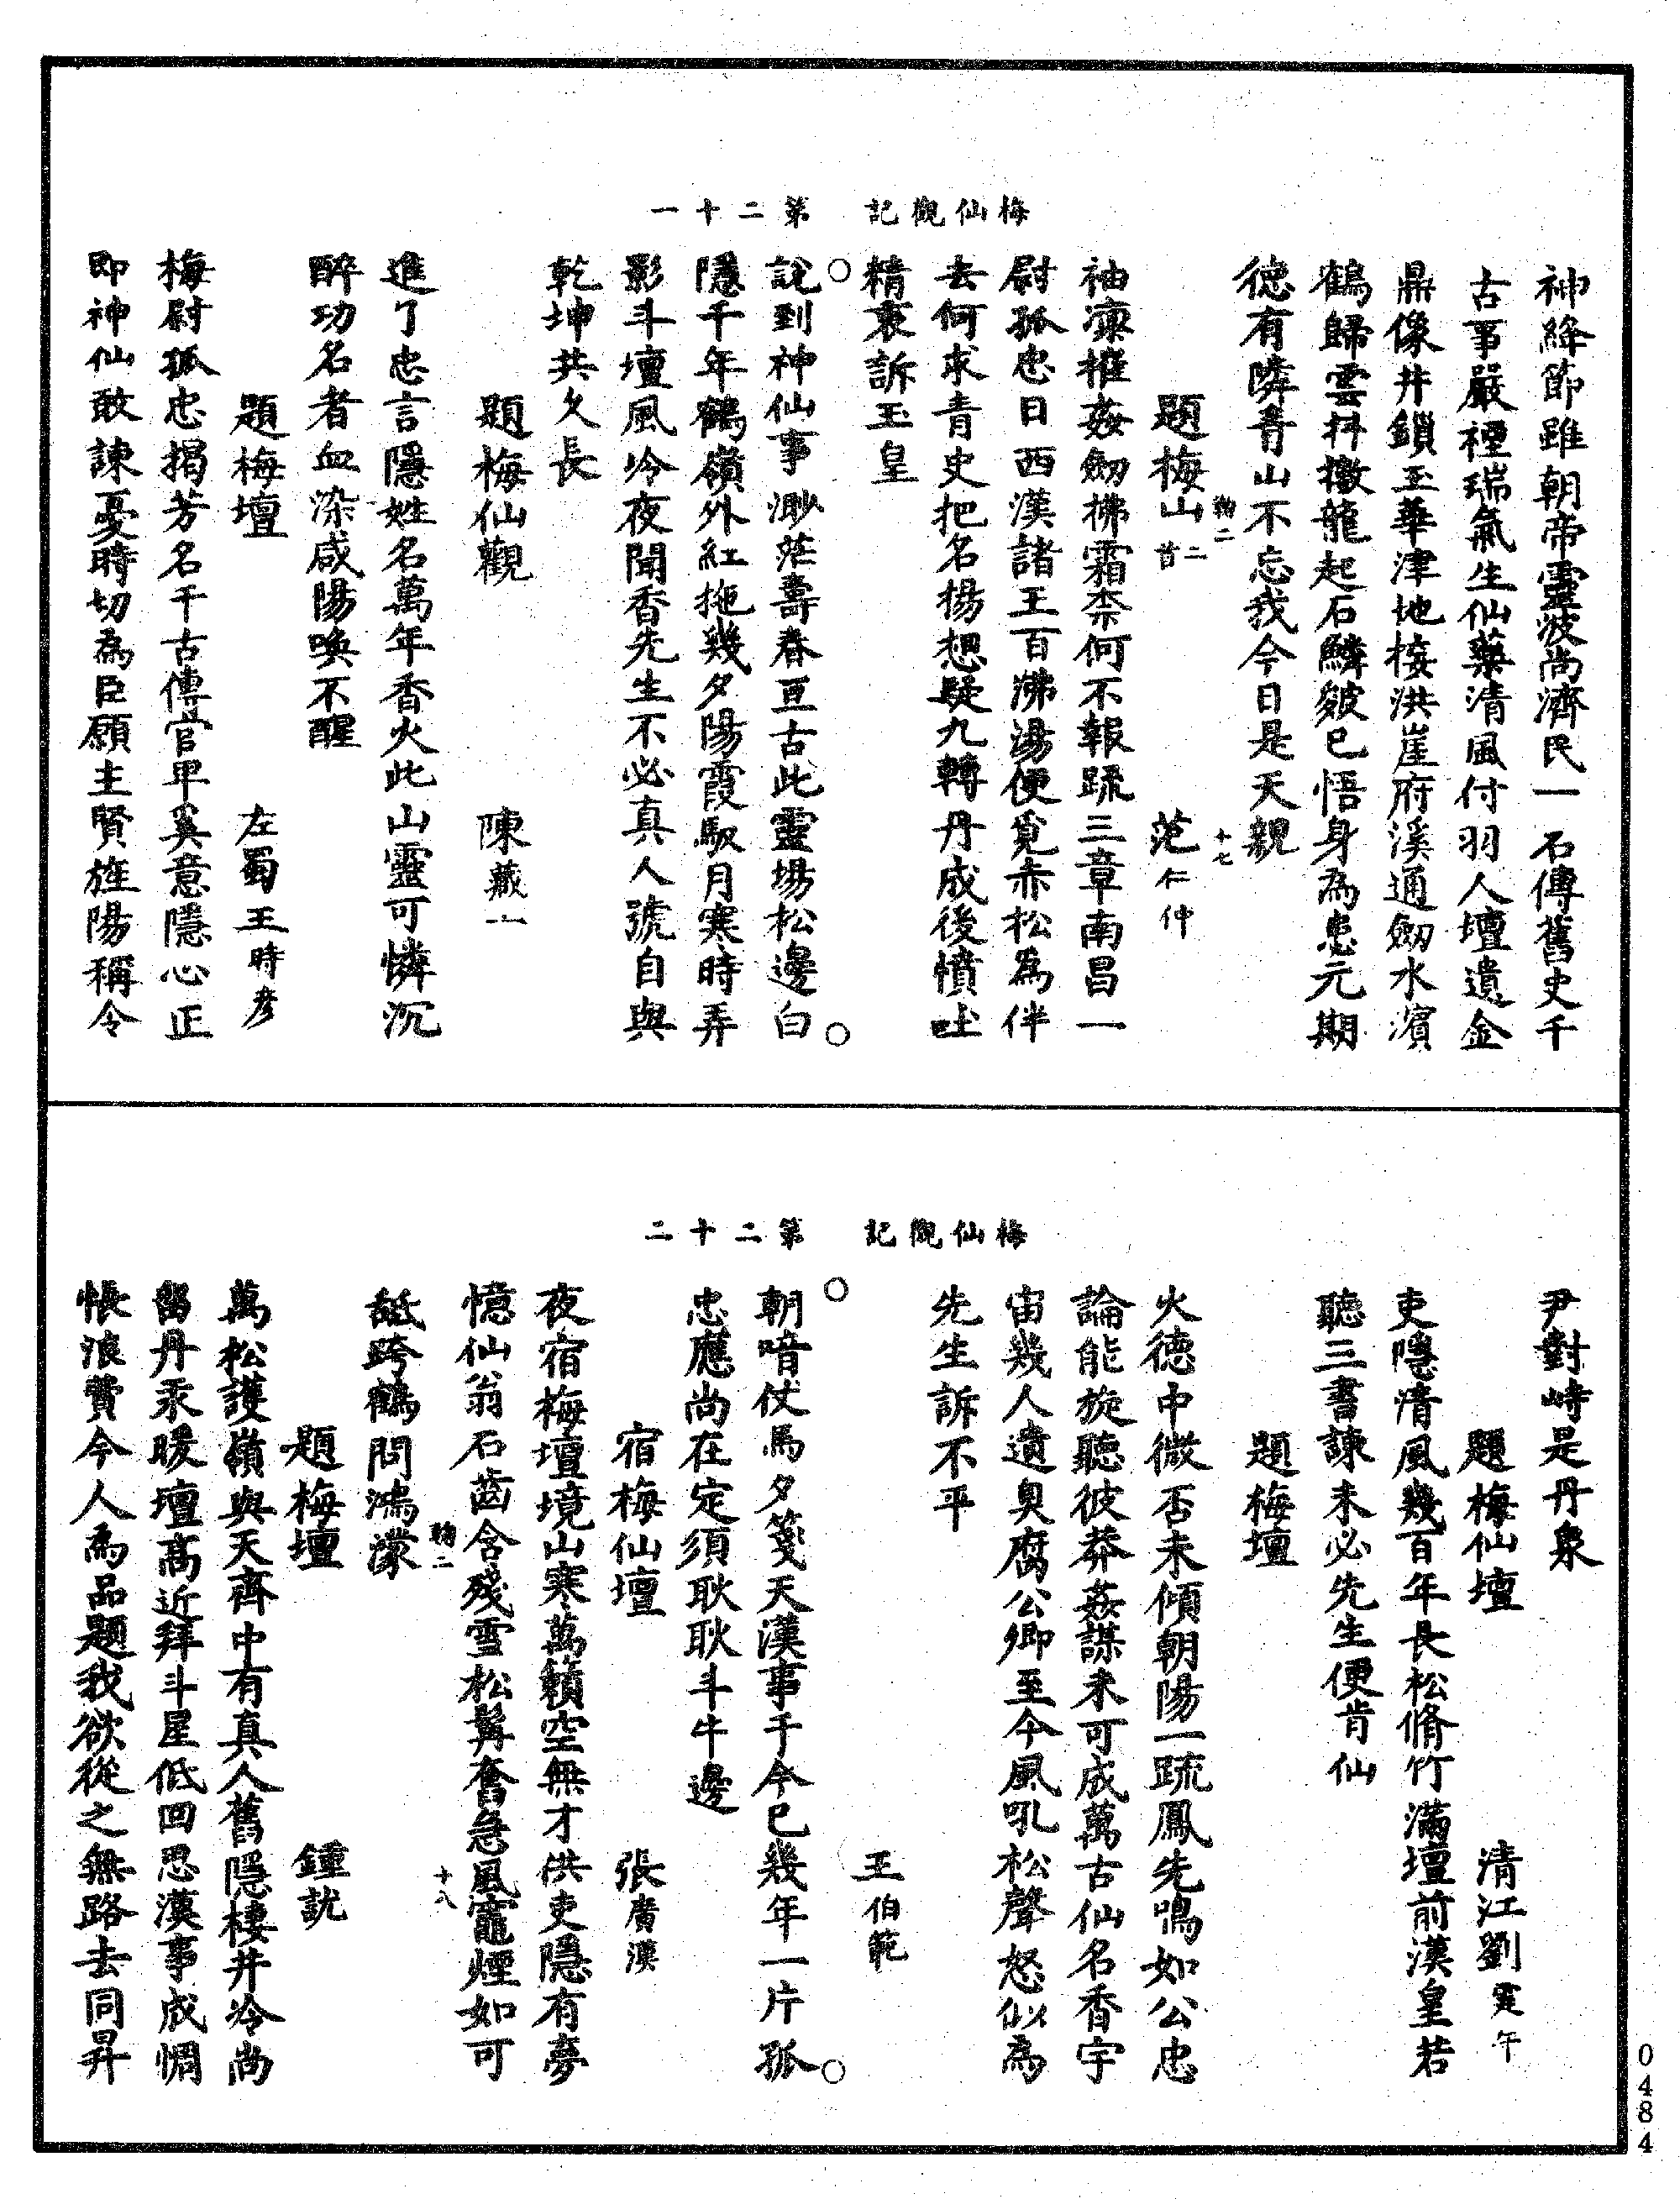 梅仙觀記　第二十一
神絳節雖朝帝靈波尚濟民一石傳舊史千
古事嚴禋瑞氣生仙藥清風付羽人壇遺金
鼎像井鎖玉華津地接洪崖府溪通劒水濱
鶴歸雲抖擻龍起石鱗皴已悟身為患元期
德有隣青山不忘我今日是天親
鞠二　十七
題梅山二首　范仁仲
袖凜權姦劒拂霜柰何不報疏三章南昌一
尉孤忠日西漢諸王百沸湯便覓赤松為伴
去何求青史把名揚想疑九轉丹成後憤吐
精衷訴玉皇
說到神仙事渺茫壽春亘古此靈場松邊白
隱千年鶴嶺外紅拖幾夕陽霞馭月寒時弄
影斗壇風冷夜聞香先生不必真人號自與
乾坤共久長
題梅仙觀　陳藏一
進了忠言隱姓名萬年香火此山靈可憐沉
醉功名者血染咸陽喚不醒
題梅壇　左蜀王時彥
梅尉孤忠揭芳名千古傳官卑奚意隱心正
即神仙敢諫憂時切為臣願主賢旌陽稱令
梅仙觀記　第二十二
尹對峙是丹泉
題梅仙壇　清江劉霆午
吏隱清風幾百年長松脩竹滿壇前漢皇若
聽三書諫未必先生便肯仙
題梅壇
火德中微否未傾朝陽一疏鳳先鳴如公忠
論能旋聽彼莽姦謀未可成萬古仙名香宇
宙幾人遺臭腐公卿至今風吼松聲怒似為
先生訴不平
王伯範
朝喑仗馬夕箋天漢事于今已幾年一片孤
忠應尚在定須耿耿斗牛邊
宿梅仙壇　張廣漢
夜宿梅壇境山寒萬籟空無才供吏隱有夢
憶仙翁石齒含殘雪松髯奮急風竈煙如可
鞠二　十八
舐跨鶴問鴻濛
題梅壇　鍾說
萬松護嶺與天齊中有真人舊隱棲井冷尚
留丹汞暖壇高近拜斗星低回思漢事成惆
悵浪費今人為品題我欲從之無路去同昇
0484